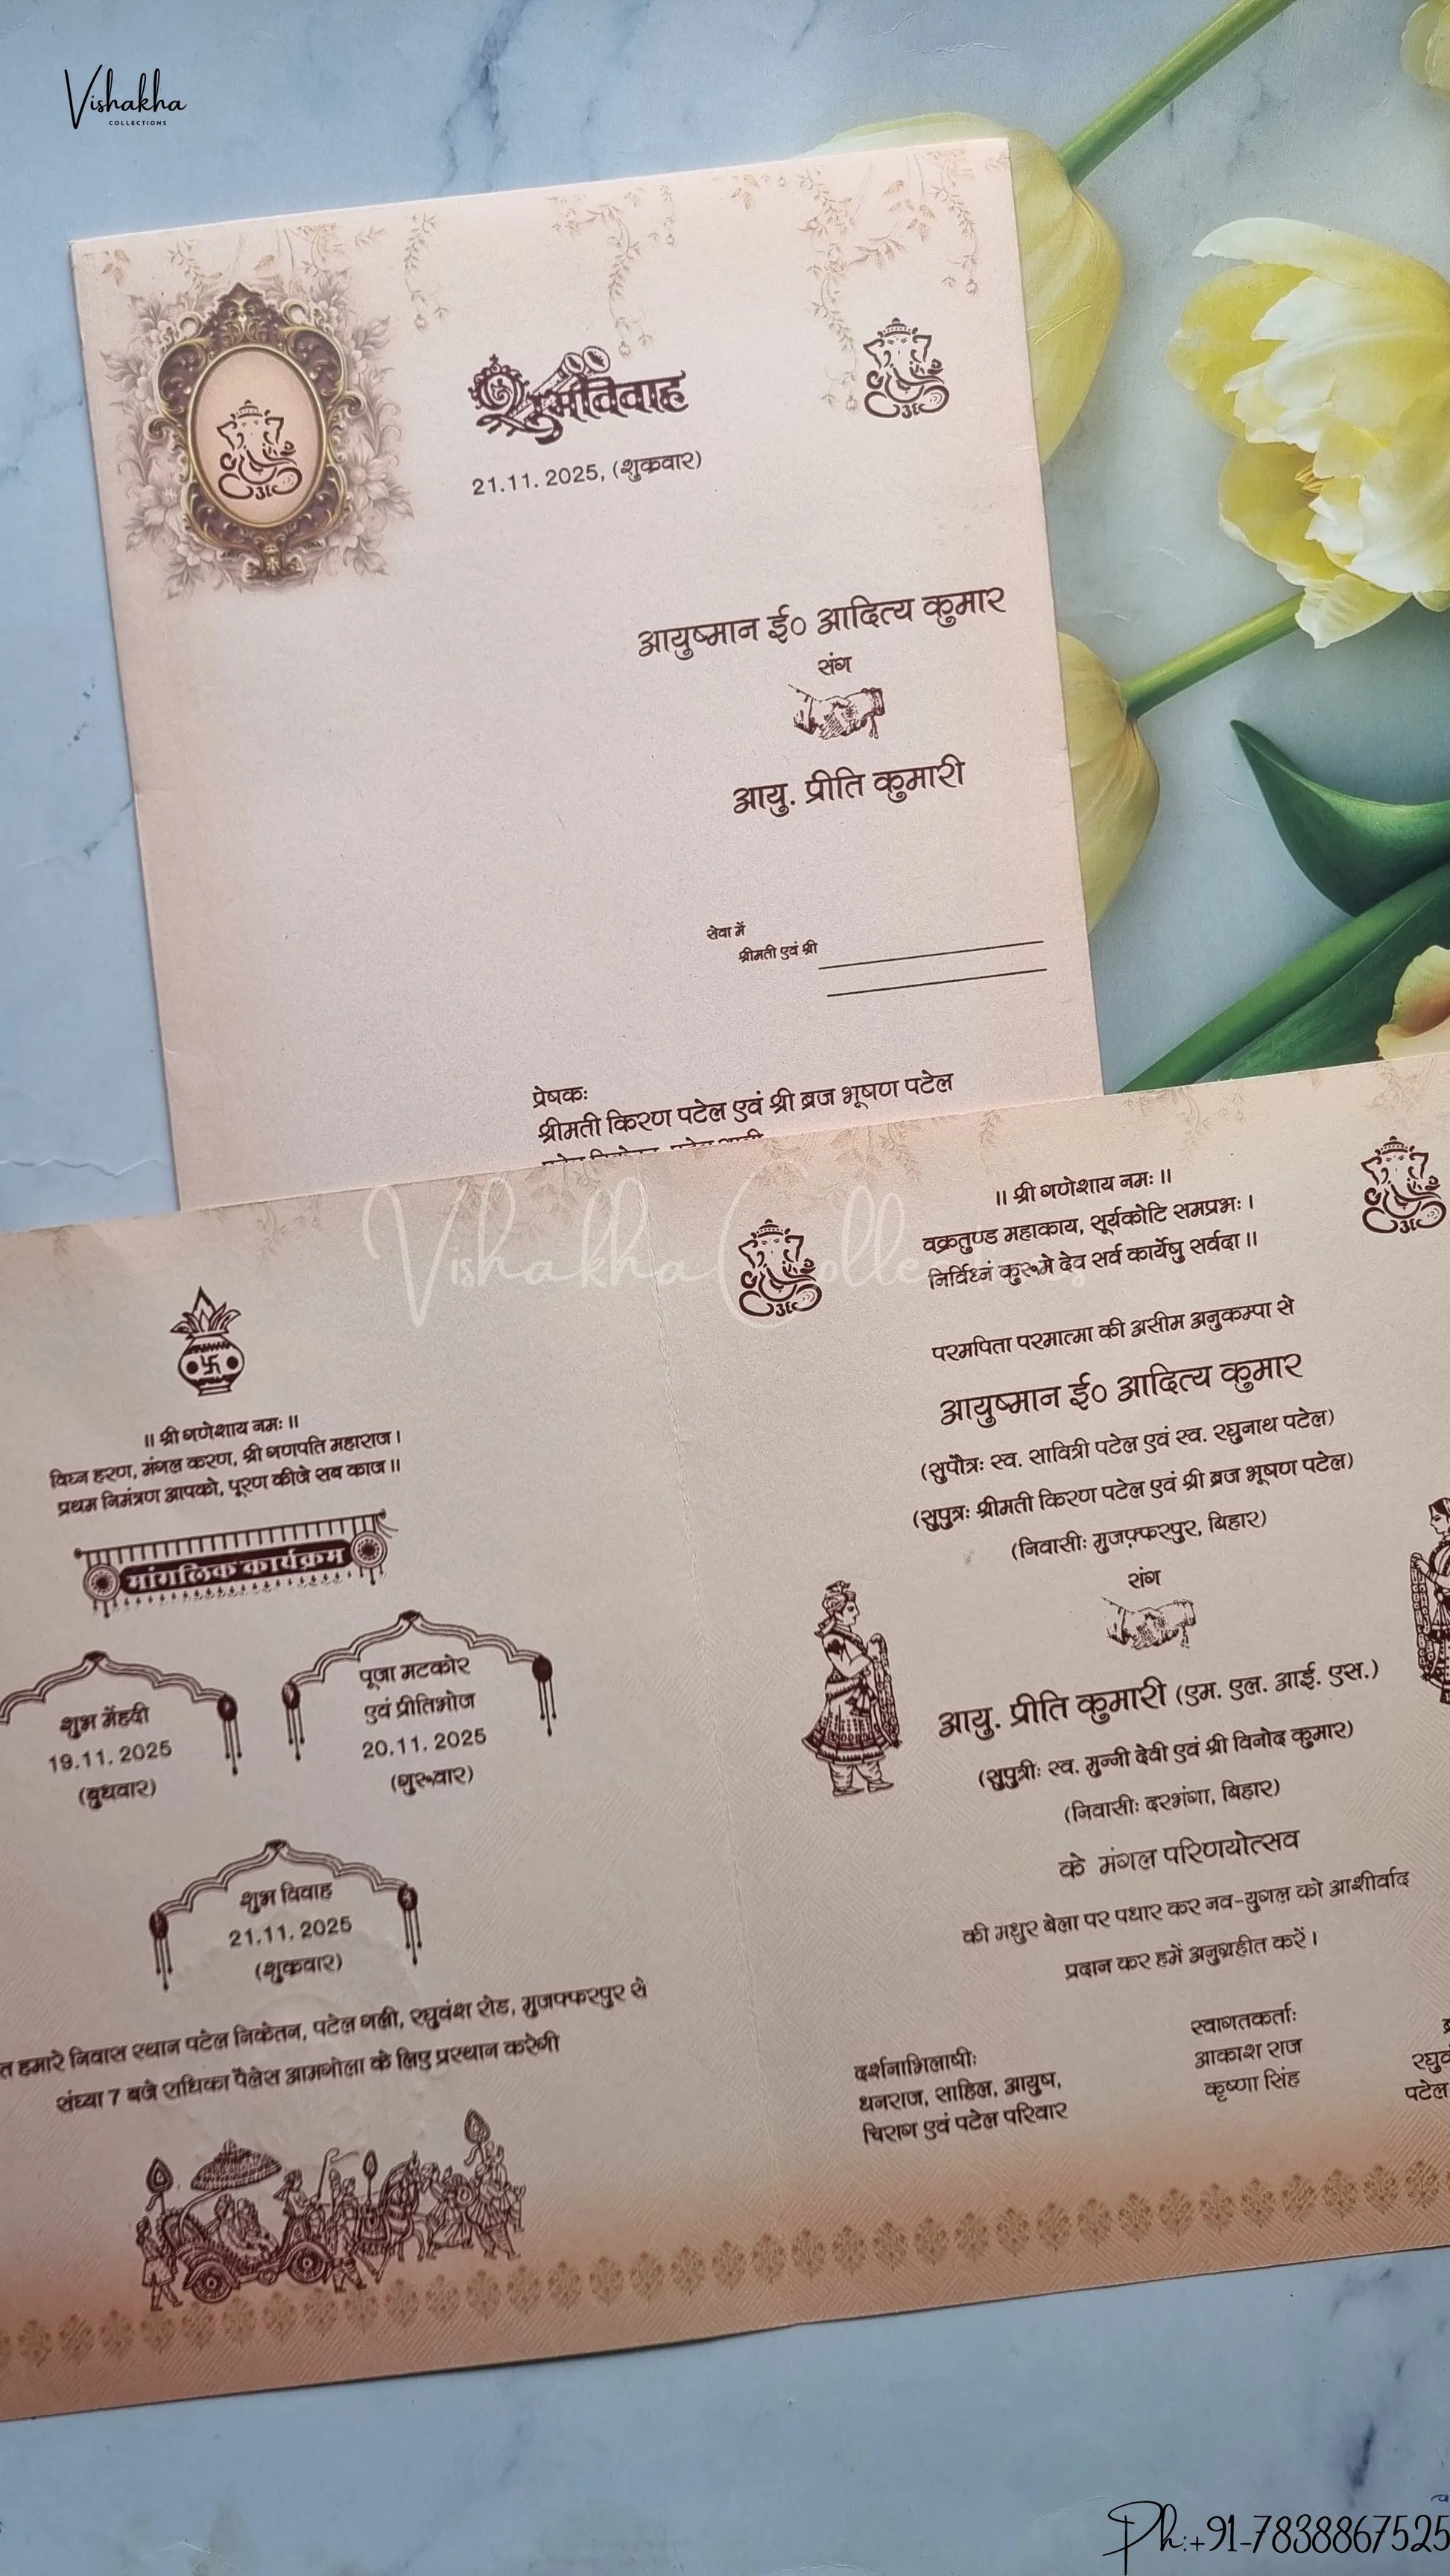 Vishakha
COLLECTIONS
शुभविवाह
21.11.2025, (शुक्रवार)
आयुष्मान ई० आदित्य कुमार
संग
आयु. प्रीति कुमारी
सेवा में
श्रीमती एवं श्री
प्रेषकः
श्रीमती किरण पटेल एवं श्री ब्रज भूषण पटेल
Vishakha Collections
॥ श्री गणेशाय नमः ॥
विघ्न हरण, मंगल करण, श्री गणपति महाराज।
प्रथम निमंत्रण आपको, पूरण कीजे सब काज॥
मांगलिक कार्यक्रम
शुभ मेंहदी
19.11.2025
(बुधवार)
पूजा मटकोर
एवं प्रीतिभोज
20.11.2025
(गुरूवार)
शुभ विवाह
21.11.2025
(शुक्रवार)
हमारे निवास स्थान पटेल निकेतन, पटेल गली, रघुवंश रोड, मुजफ्फरपुर से
संध्या 7 बजे राधिका पैलेस आमगोला के लिए प्रस्थान करेगी
॥ श्री गणेशाय नमः ॥
वक्रतुण्ड महाकाय, सूर्यकोटि समप्रभः।
निर्विध्नं कुरूमे देव सर्व कार्येषु सर्वदा॥
परमपिता परमात्मा की असीम अनुकम्पा से
आयुष्मान ई० आदित्य कुमार
(सुपौत्रः स्व. सावित्री पटेल एवं स्व. रघुनाथ पटेल)
(सुपुत्रः श्रीमती किरण पटेल एवं श्री ब्रज भूषण पटेल)
(निवासीः मुजफ़्फरपुर, बिहार)
संग
आयु. प्रीति कुमारी (एम. एल. आई. एस.)
(सुपुत्रीः स्व. मुन्नी देवी एवं श्री विनोद कुमार)
(निवासीः दरभंगा, बिहार)
के मंगल परिणयोत्सव
की मधुर बेला पर पधार कर नव-युगल को आशीर्वाद
प्रदान कर हमें अनुग्रहीत करें।
दर्शनाभिलाषीः
धनराज, साहिल, आयुष,
चिराग एवं पटेल परिवार
स्वागतकर्ताः
आकाश राज
कृष्णा सिंह
पटेल
Ph:+91-7838867525